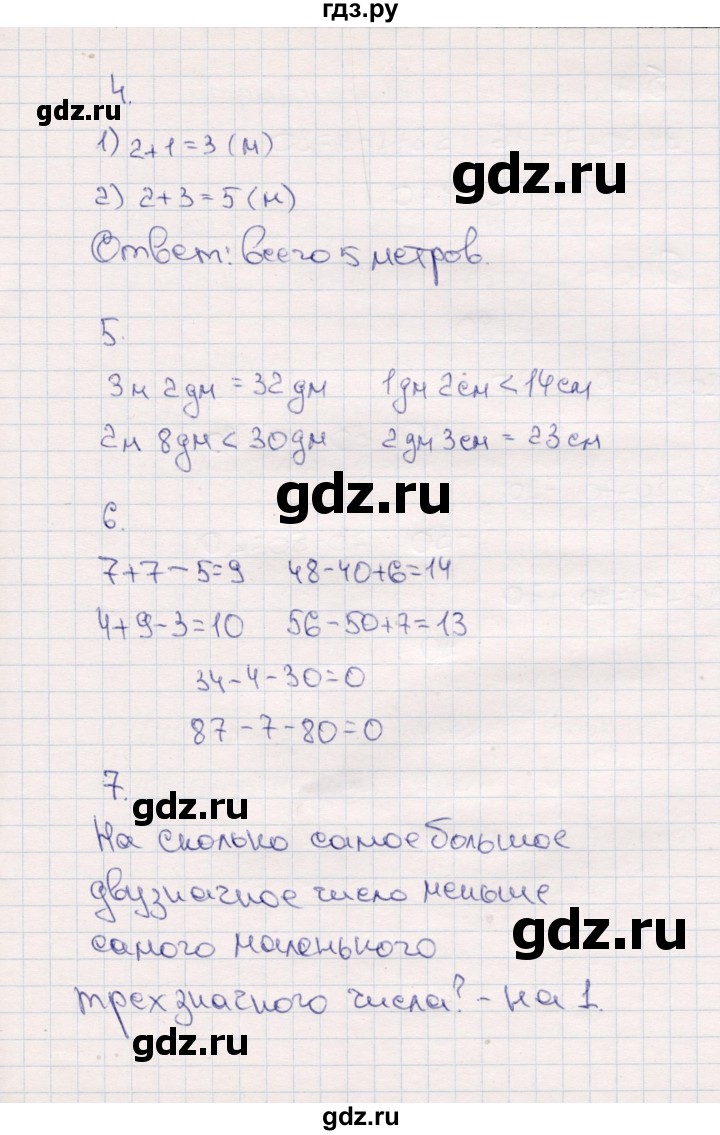 гдз.ру
4.
gdz.ru
1) 2+1=3 (м)
gdz.ru
2) 2+3=5 (м)
Ответ: всего 5 метров.
5.
3м 2дм = 32дм 1дм 2см < 14см
2м 8дм < 30дм 2дм 3см = 23см
gdz.ru
6.
7+7-5=9 48-40+6=14
4+9-3=10 56-50+7=13
34-4-30=0
87-7-80=0
7.
gdz.ru
На сколько самое большое
двузначное число меньше
gdz.ru
самого маленького
трехзначного числа? - на 1.
gdz.ru
gdz.ru